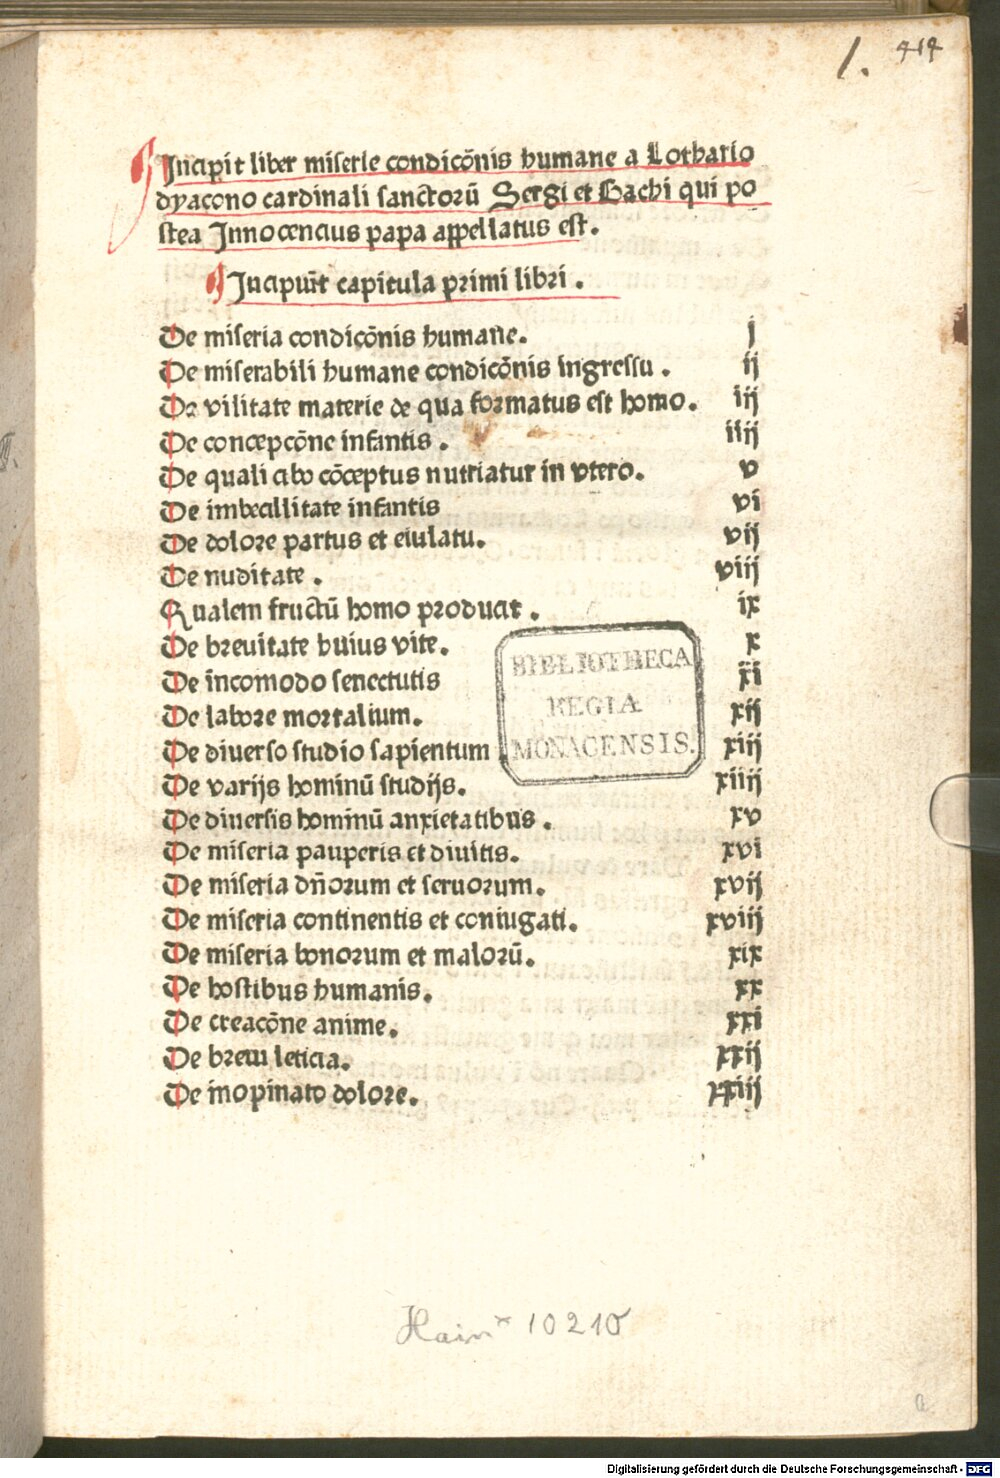 1. 414
Incipit liber miserie condicōnis humane a Lothario
dyacono cardinali sanctorū Sergi et Bachi qui po
stea Innocencius papa appellatus est.
Incipiūt capitula primi libri .
De miseria condicōnis humane. j
De miserabili humane condicōnis ingressu . ij
De vilitate materie de qua formatus est homo. iij
De concepcōne infantis . iiij
De quali cibo cōceptus nutriatur in vtero. v
De imbecillitate infantis vi
De dolore partus et eiulatu. vij
De nuditate . viij
Qualem fructū homo producit . ix
De breuitate huius vite. x
De incomodo senectutis xi
De labore mortalium. xij
De diuerso studio sapientum xiij
De varijs hominū studijs. xiiij
De diuersis hominū anxietatibus . xv
De miseria pauperis et diuitis. xvi
De miseria dn̄orum et seruorum. xvij
De miseria continentis et coniugati. xviij
De miseria bonorum et malorū. xix
De hostibus humanis. xx
De creacōne anime. xxi
De breui leticia. xxij
De inopinato dolore. xxiij
BIBLIOTHECA
REGIA
MONACENSIS.
Hain* 10210
a
Digitalisierung gefördert durch die Deutsche Forschungsgemeinschaft - DFG